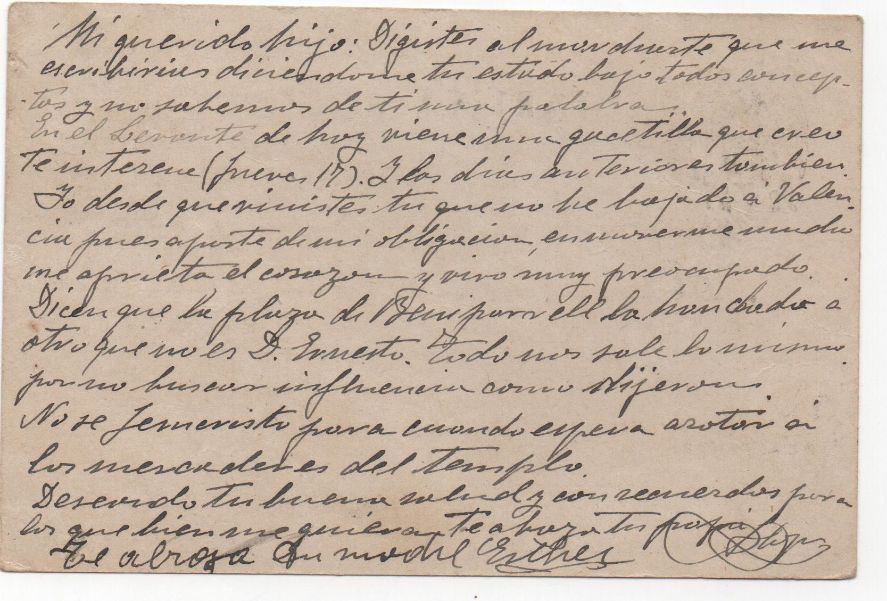 Mi querido hijo: Digistes al marcharte que me
escribirias diciendome tu estado bajo todos concep-
tos y no sabemos de ti una palabra
En el Levante de hoy viene una gacetilla que creo
te interese (Jueves 17). Y los dias anteriores tambien.
Yo desde que vinistes tu que no he bajado á Valen-
cia pues aparte de mi obligacion, en moverme mucho
me aprieta el corazon y vivo muy preocupado.
Dicen que la plaza de Beniparrell la han dado a
otro que no es D. Ernesto. Todo nos sale lo mismo
por no buscar influencia como dijeron
No se Jesucristo para cuando espera azotar á
los mercaderes del templo
Deseando tu buena salud y con recuerdos para
los que bien me quieran te abraza tu papá
Te abraza tu madre Esther